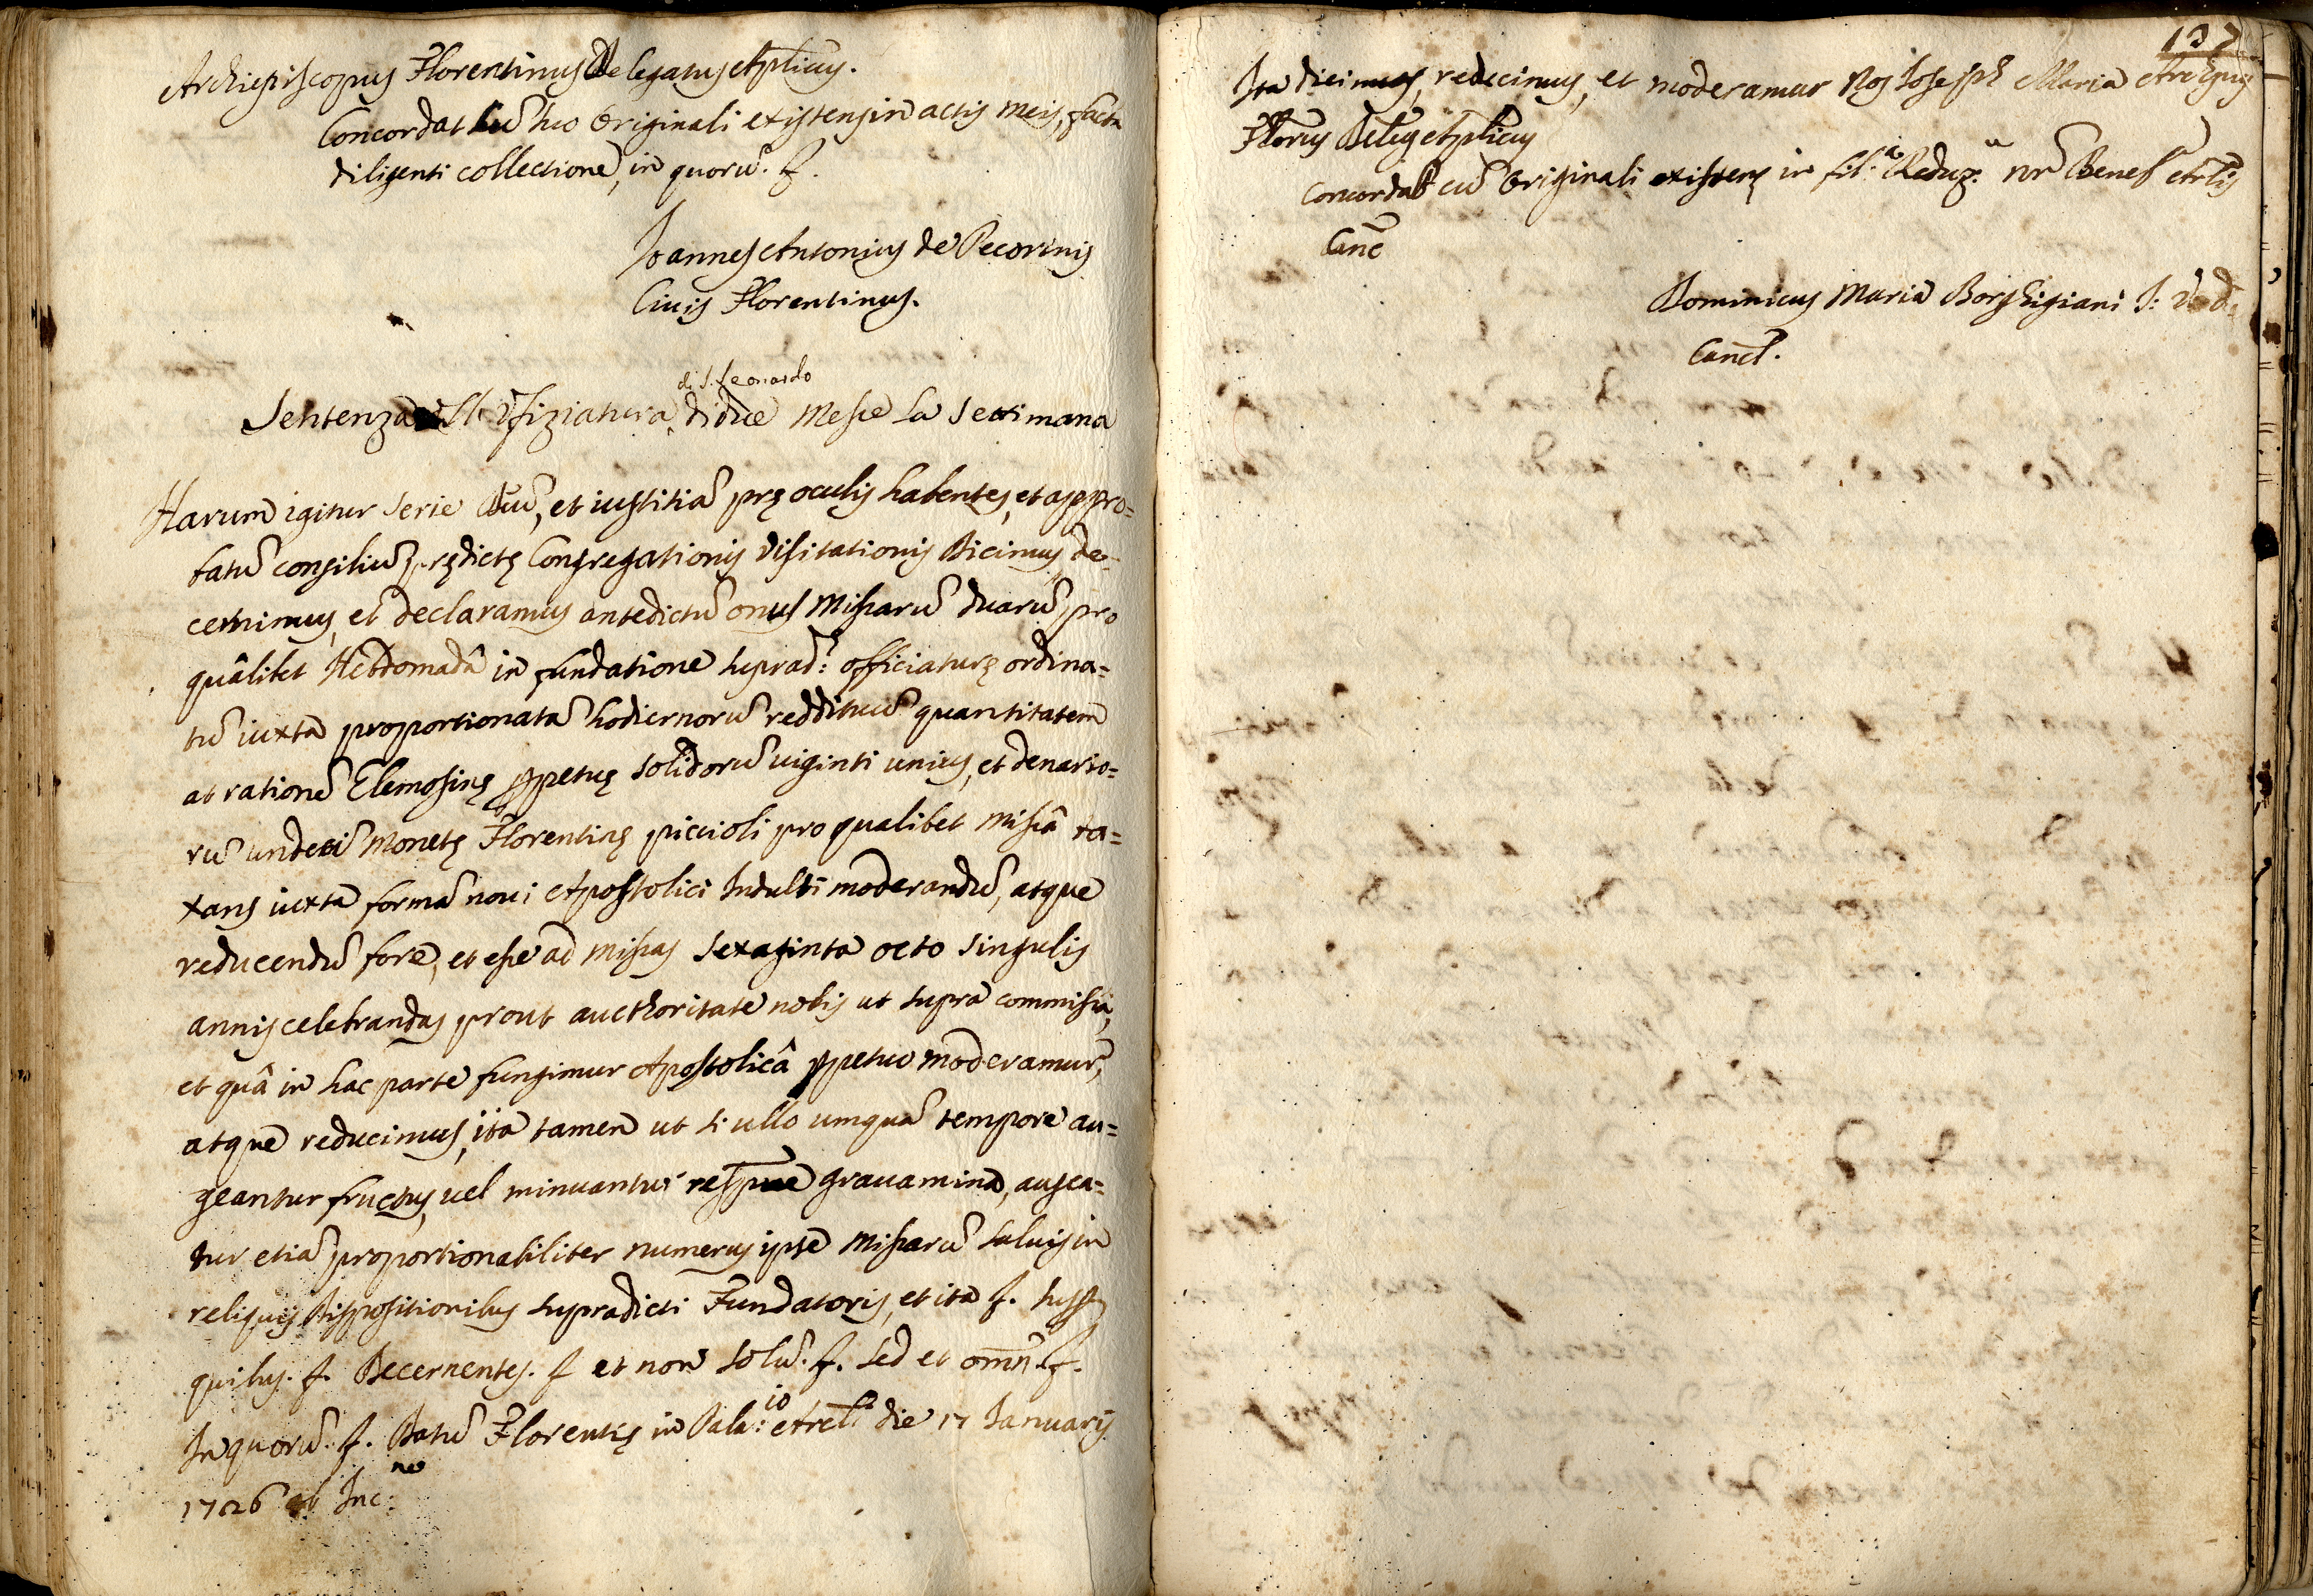 Archiepiscopus Florentinus Delegatus Aplicus.
Concordat cũ suo Originali existens in actis meis, facta
diligenti collectione, in quorũ. f.
Joannes Antonius de Pecorinis
Civis Florentinus.
di S. Leonardo
Sentenza Ufiziatura di due Messe la Settimana
Harum igitur serie Deũ, et iustitiã prę oculis habentes, et appro=
batũ consiliũ prędictę Congregationis Visitationis Dicimus, de=
cernimus, et declaramus antedictũ onus Missarũ duarũ pro
quâlibet Hebdomadâ in fundatione suprad: officiaturę ordina=
tũ iuxta proportionatã hodiernorũ reddituũ quantitatem
ac rationẽ Elemosinę ppetuę solidorũ uiginti unius, et denario=
rũ undeci Monetę Florentinę piccioli pro qualibet missâ ta=
xans iuxta formã noui Apostolici Indulti moderandũ, atque
reducendũ fore, et esse ad missas sexaginta octo singulis
annis celebrandas prout aucthoritate nobis ut supra commissa,
et quâ in hac parte fungimur Apostolicâ ppetuo moderamur,
atque reducimus, ita tamen ut si ullo umquã tempore au=
geantur fructus, uel minuantur respue grauamina, augea=
tur etiã proportionabiliter numerus ipse Missarũ saluis in
reliquis Dispositionibus supradicti Fundatoris, et ita f. supp
quibus. f. Decernentes. f et non solũ. f. sed et omñ. f.
In quorũ. f. Datũ Florentię in Pala:io Arcl die 17 Januarij
1726 ab Inc:ne
137
Ita dicimus, reducimus, et moderamur Nos Joseph Maria Archpus
Florus Deleg Aplicus
Concordat cũ Originali existens in fil:a Reduz:n nr̃ Benef Arlis
Canc
Dominicus Maria Borghigiani J: V: d:
Canel.